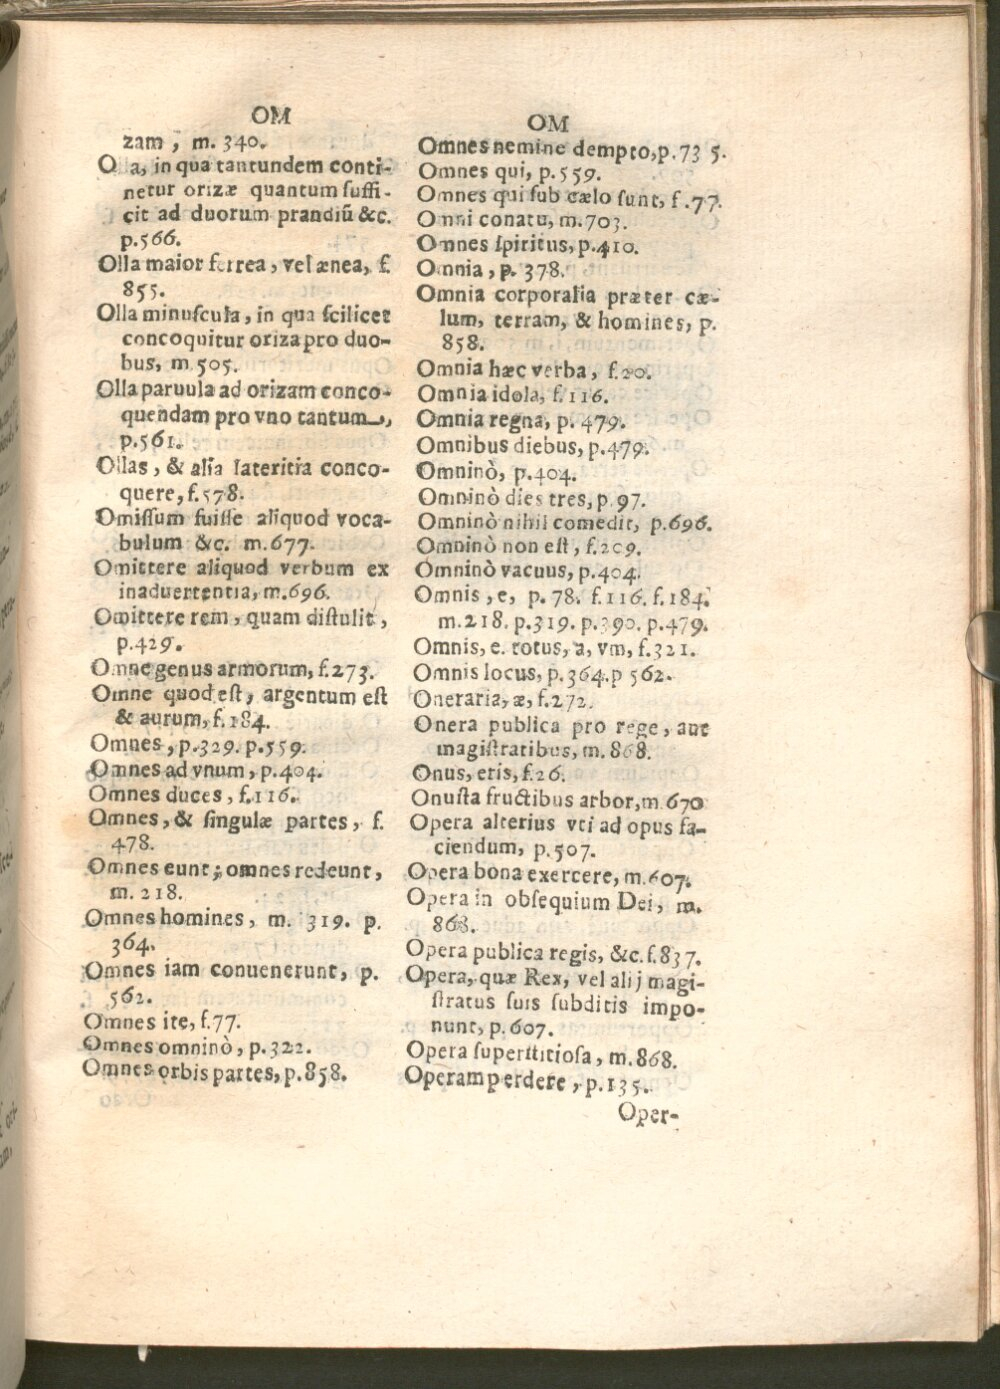 OM
zam, m. 340.
Olla, in qua tantundem conti-
netur orizæ quantum ſuffi-
cit ad duorum prandiũ &c.
p.566.
Olla maior ferrea, vel ænea, f.
855.
Olla minuſcula, in qua ſcilicet
concoquitur oriza pro duo-
bus, m.505.
Olla paruula ad orizam conco-
quendam pro vno tantum,
p.561.
Ollas, & alia lateritia conco-
quere, f.578.
Omiſſum fuiſſe aliquod voca-
bulum &c. m.677.
Omittere aliquod verbum ex
inaduertentia, m.696.
Omittere rem, quam diſtulit,
p.429.
Omne genus armorum, f.273.
Omne quod eſt, argentum eſt
& aurum, f.184.
Omnes, p.329. p.559.
Omnes ad vnum, p.404.
Omnes duces, f.116.
Omnes, & ſingulæ partes, f.
478.
Omnes eunt; omnes redeunt,
m. 218.
Omnes homines, m. 319. p.
364.
Omnes iam conuenerunt, p.
562.
Omnes ite, f.77.
Omnes omninò, p.322.
Omnes orbis partes, p.858.
OM
Omnes nemine dempto, p.735.
Omnes qui, p.559.
Omnes qui ſub cælo ſunt, f.77.
Omni conatu, m.703.
Omnes ſpiritus, p.410.
Omnia, p. 378.
Omnia corporalia præter cæ-
lum, terram, & homines, p.
858.
Omnia hæc verba, f.20.
Omnia idola, f.116.
Omnia regna, p.479.
Omnibus diebus, p.479.
Omninò, p.404.
Omninò dies tres, p.97.
Omninò nihil comedit, p.696.
Omninò non eſt, f.209.
Omninò vacuus, p.404.
Omnis, e, p. 78. f.116. f.184.
m.218. p.319. p.390. p.479.
Omnis, e. totus, a, vm, f.321.
Omnis locus, p.364. p 562.
Oneraria, æ, f.272.
Onera publica pro rege, aut
magiſtratibus, m. 868.
Onus, eris, f.26.
Onuſta fructibus arbor, m.670
Opera alterius vti ad opus fa-
ciendum, p.507.
Opera bona exercere, m.607.
Opera in obſequium Dei, m.
868.
Opera publica regis, &c. f.837.
Opera, quæ Rex, vel alij magi-
ſtratus ſuis ſubditis impo-
nunt, p.607.
Opera ſuperſtitioſa, m.868.
Operam perdere, p.135.
Oper-